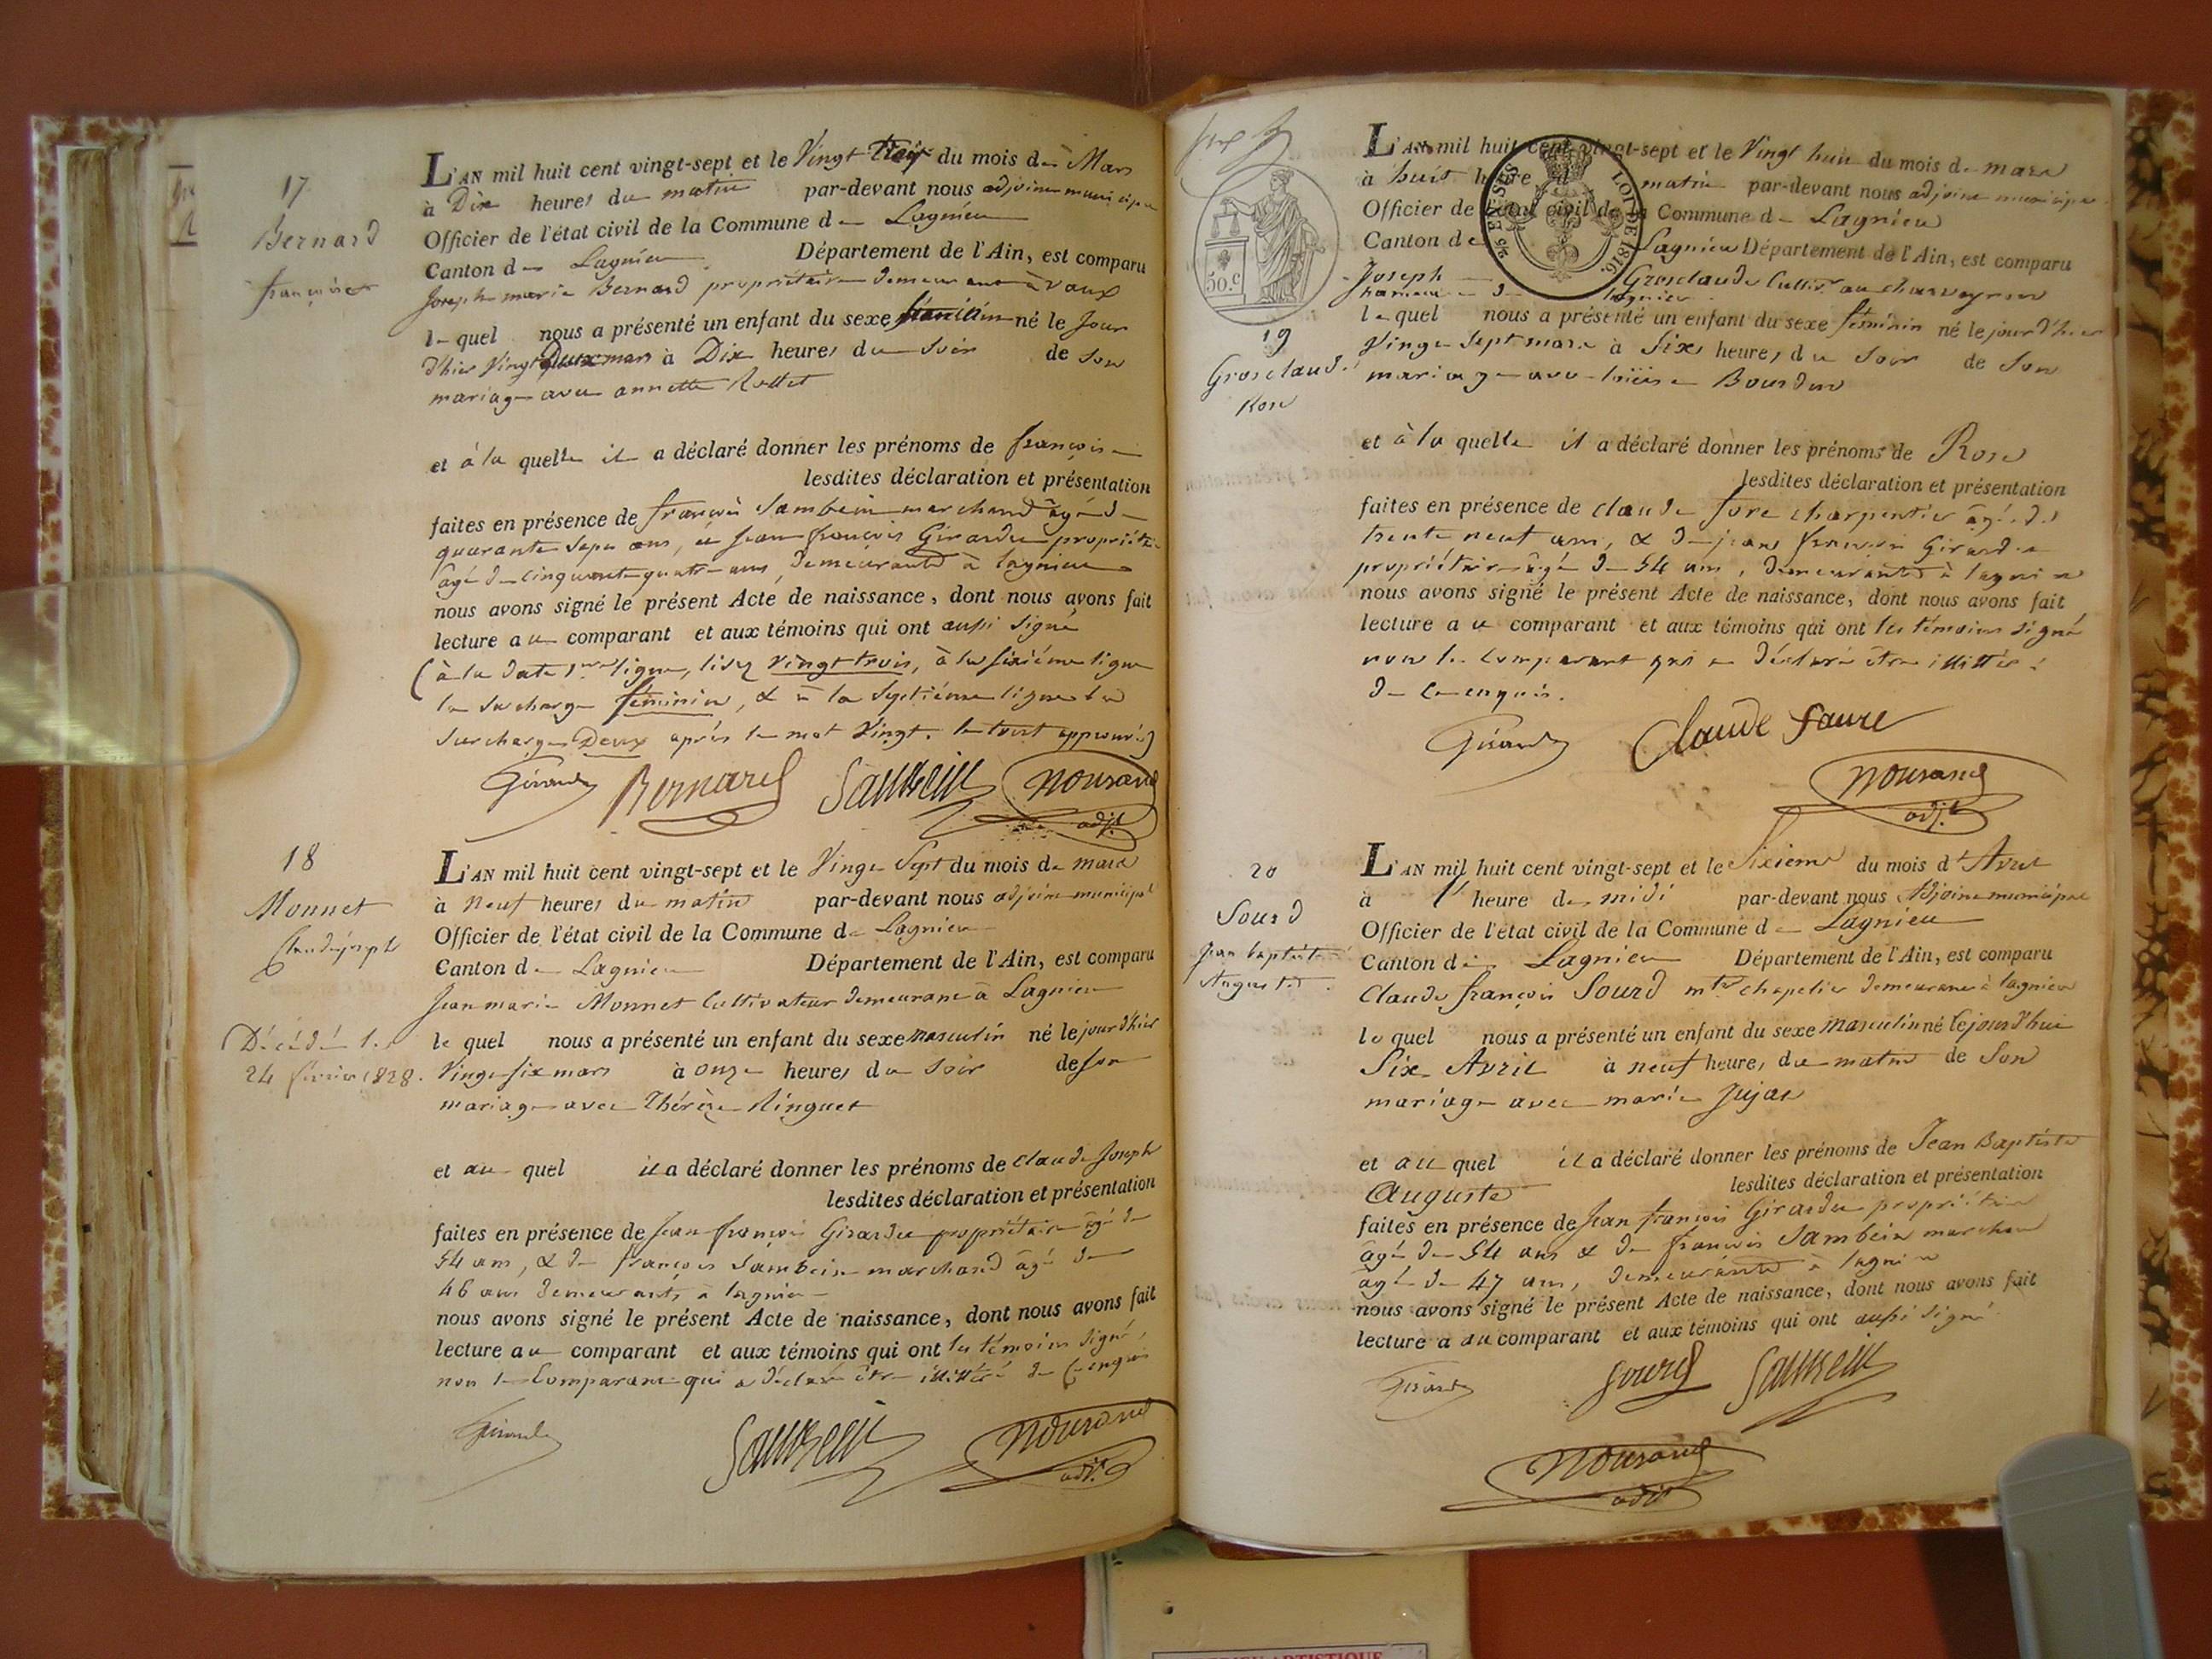 17
Bernard
françoise
L'AN mil huit cent vingt-sept et le Vingt trois du mois de Mars
à Dix heures du matin par-devant nous adjoint municipal
Officier de l'état civil de la Commune de Lagnieu
Canton de Lagnieu Département de l'Ain, est comparu
Joseph marie Bernard propriétaire demeurant à Vaux
lequel nous a présenté un enfant du sexe féminin né le jour
d'hier Vingt Deux mars à Dix heures du soir de son
mariage avec annette Rollet
et à la quelle il a déclaré donner les prénoms de françoise
lesdites déclaration et présentation
faites en présence de françois Sambein marchand âgé de
quarante sept ans, et jean françois Girardin propriétaire
âgé de cinquante quatre ans, demeurants à lagnieu
nous avons signé le présent Acte de naissance, dont nous avons fait
lecture au comparant et aux témoins qui ont aussi signé
(à la date 1re ligne, lisez vingt trois, à la sixième ligne
la surcharge féminin, & à la septième ligne la
surcharge Deux après le mot Vingt. le tout approuvé)
Bernard Sambein Noursand
adjt
18
Monnet
Claude joseph
Décédé le
24 février 1828.
L'AN mil huit cent vingt-sept et le Vingt Sept du mois de mars
à neuf heures du matin par-devant nous adjoint municipal
Officier de l'état civil de la Commune de Lagnieu
Canton de Lagnieu Département de l'Ain, est comparu
Jean marie Monnet Cultivateur demeurant à Lagnieu
le quel nous a présenté un enfant du sexe masculin né le jour d'hier
Vingt six mars à onze heures du soir de son
mariage avec Thérèse Ringuet
et au quel il a déclaré donner les prénoms de Claude Joseph
lesdites déclaration et présentation
faites en présence de Jean françois Girardin propriétaire âgé de
54 ans, & de françois Sambein marchand âgé de
46 ans demeurants à lagnieu
nous avons signé le présent Acte de naissance, dont nous avons fait
lecture au comparant et aux témoins qui ont les témoins signé,
non le Comparant qui a déclaré être illittéré de ce enquis
Sambein Noursand
adjt
50.c
25 EN SUS LOI DE 1816.
19
Grosclaude
Rose
L'AN mil huit cent vingt-sept et le Vingt huit du mois de mars
à huit heures du matin par-devant nous adjoint municipal
Officier de l'état civil de la Commune de Lagnieu
Canton de Lagnieu Département de l'Ain, est comparu
Joseph Grosclaude Cultivr au charveyron
hameau de lagnieu
lequel nous a présenté un enfant du sexe féminin né le jour d'hier
Vingt Sept mars à Six heures du Soir de son
mariage avec loüise Bourdin
et à la quelle il a déclaré donner les prénoms de Rose
lesdites déclaration et présentation
faites en présence de claude fore charpentier âgé de
trente neuf ans, & de jean françois Girardin
propriétaire âgé de 54 ans, demeurants à lagnieu
nous avons signé le présent Acte de naissance, dont nous avons fait
lecture au comparant et aux témoins qui ont les témoins signé
non le comparant qui a déclaré être illittéré
de ce enquis.
Claude faure
Noursand
adjt
20
Sourd
jean baptiste
Auguste
L'AN mil huit cent vingt-sept et le Sixieme du mois d'Avril
à 1 heure de midi par-devant nous Adjoint municipal
Officier de l'état civil de la Commune de Lagnieu
Canton de Lagnieu Département de l'Ain, est comparu
Claude françois Sourd mtre chapelier demeurant à lagnieu
le quel nous a présenté un enfant du sexe masculin né le jourd'hui
Six Avril à neuf heures du matin de Son
mariage avec marie Jujat
et au quel il a déclaré donner les prénoms de Jean Baptiste
Auguste lesdites déclaration et présentation
faites en présence de Jean françois Girardin propriétaire
âgé de 54 ans & de françois Sambein marchand
âgé de 47 ans, demeurants à lagnieu
nous avons signé le présent Acte de naissance, dont nous avons fait
lecture a au comparant et aux témoins qui ont aussi signé
Sourd Sambein
Noursand
adjt